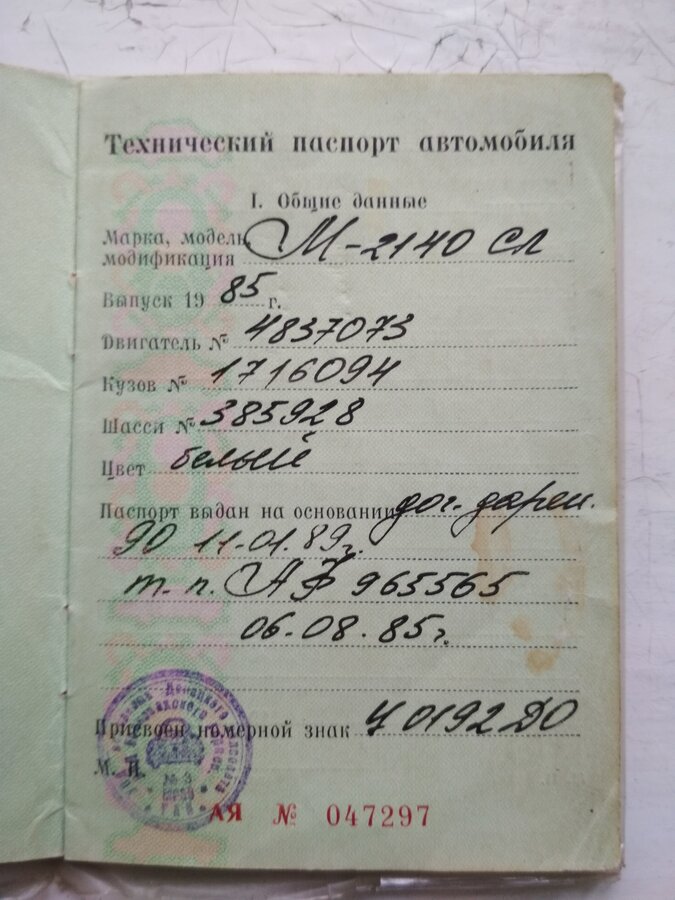 Технический паспорт автомобиля
I. Общие данные
Марка, модель, модификация М-2140 СЛ
Выпуск 19 85 г.
Двигатель № 4837073
Кузов № 1716094
Шасси № 385928
Цвет белый
Паспорт выдан на основании дог. дарен.
90 11-01.89г.
т.п. АФ 965565
06.08.85г.
Присвоен номерной знак Ч 0192 ДО
М. П.
№ 3
АЯ № 047297